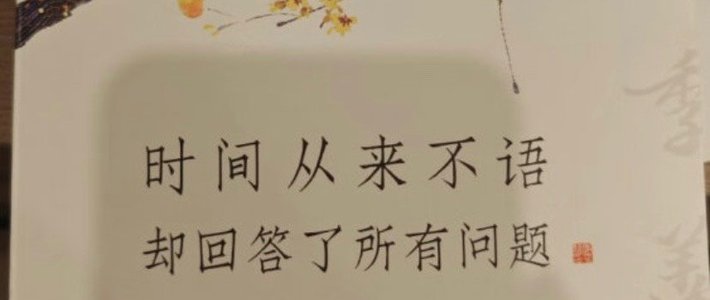 时间从来不语
却回答了所有问题
季